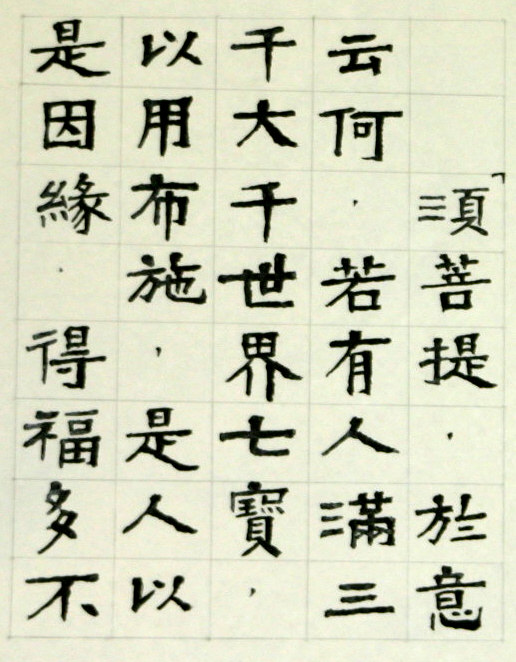 「須菩提，於意
云何，若有人滿三
千大千世界七寶，
以用布施，是人以
是因緣，得福多不